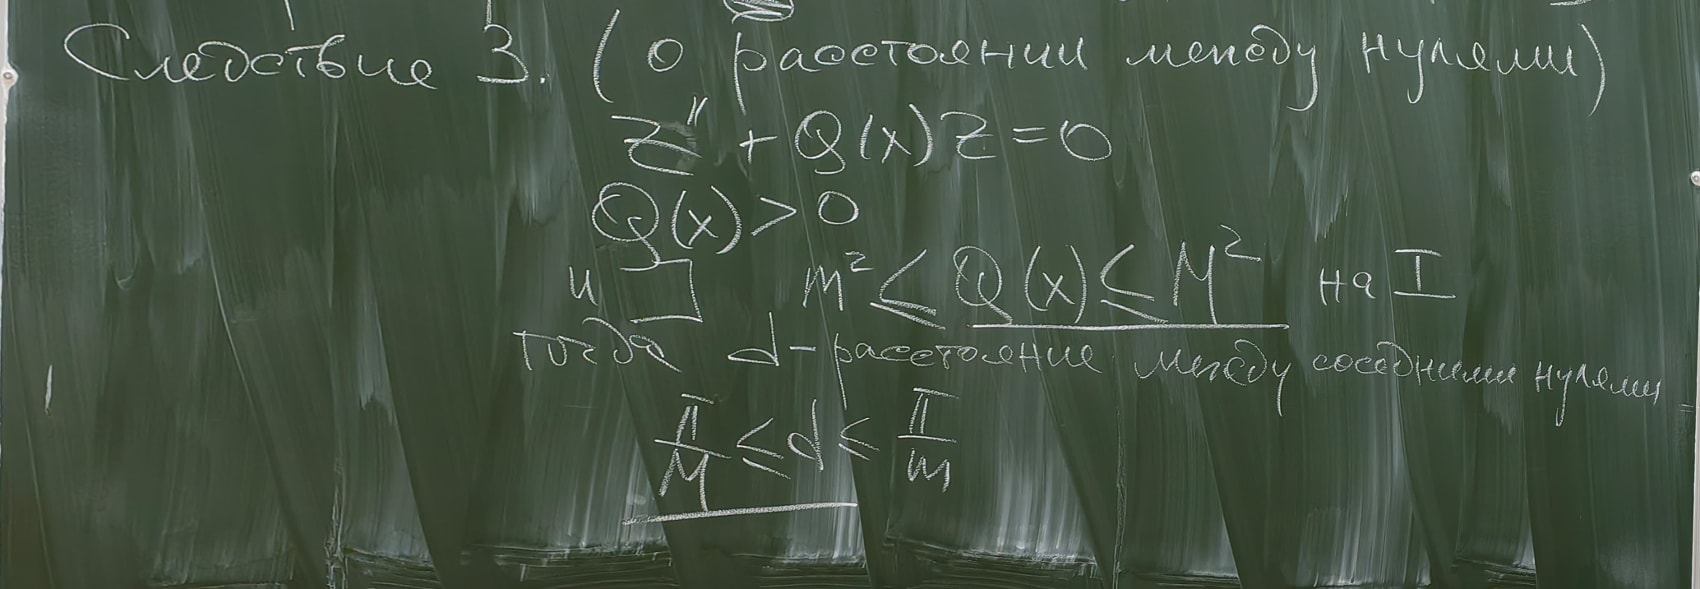 Следствие 3. (о расстоянии между нулями)
Z'' + Q(x)Z = 0
Q(x) > 0
и ] m² ≤ Q(x) ≤ M² на I
тогда d - расстояние между соседними нулями
π/M ≤ d ≤ π/m